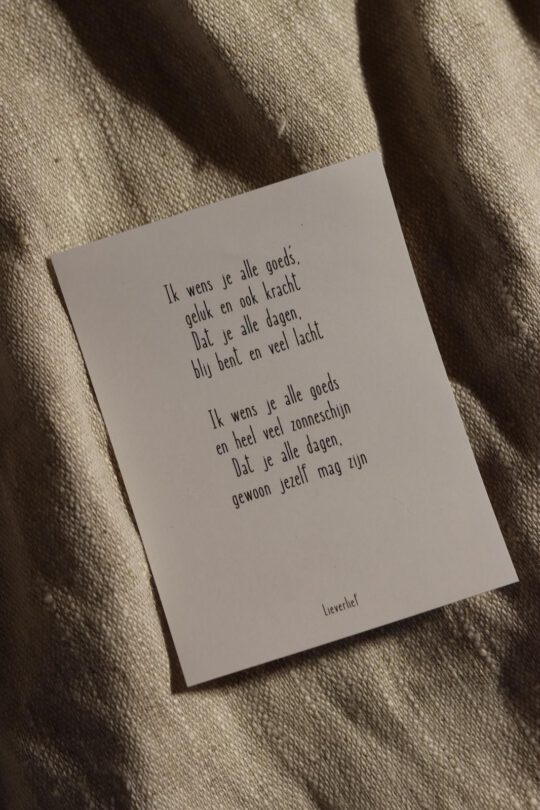 Ik wens je alle goeds,
geluk en ook kracht
Dat je alle dagen,
blij bent en veel lacht
Ik wens je alle goeds
en heel veel zonneschijn
Dat je alle dagen,
gewoon jezelf mag zijn
Lieverlief